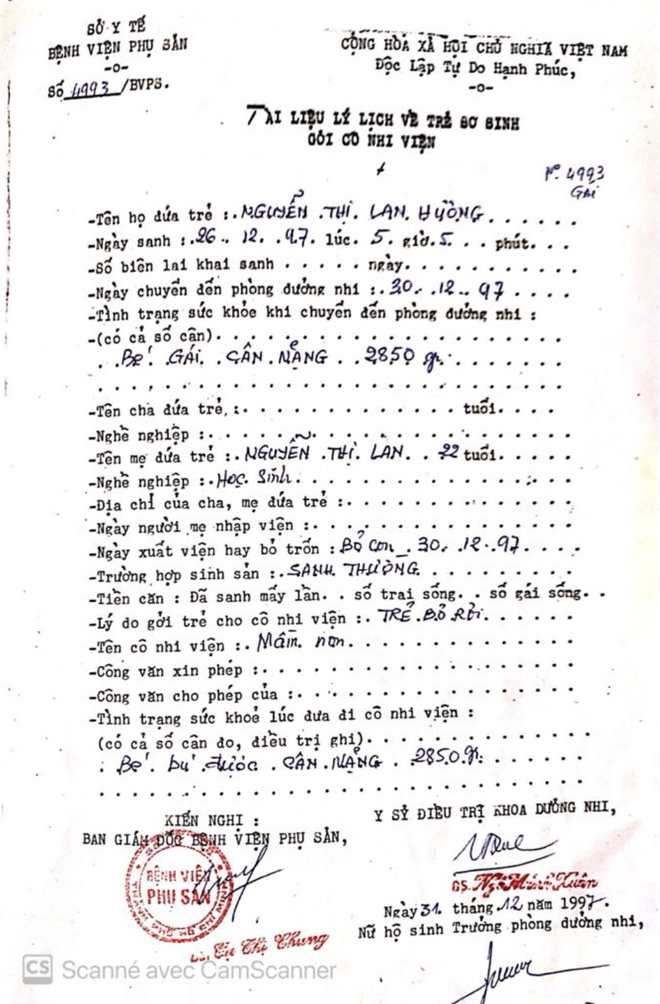 SỞ Y TẾ
BỆNH VIỆN PHỤ SẢN
-o-
Số 4993/BVPS.
CỘNG HÒA XÃ HỘI CHỦ NGHĨA VIỆT NAM
Độc Lập Tự Do Hạnh Phúc,
-o-
TÀI LIỆU LÝ LỊCH VỀ TRẺ SƠ SINH
GỞI CÔ NHI VIỆN
Nº 4993
GÁI
-Tên họ đứa trẻ : NGUYỄN THỊ LAN HƯỜNG
-Ngày sanh : 26. 12. 97. lúc. 5. giờ. 5. phút.
-Số biên lai khai sanh . . . . . ngày. . . . . . . . . . .
-Ngày chuyển đến phòng dưỡng nhi : 30. 12. 97
-Tình trạng sức khỏe khi chuyển đến phòng dưỡng nhi :
-(có cả số cân). . . . . . . . . . . . . . . . .
BÉ GÁI CÂN NẶNG 2850 gr.
-Tên cha đứa trẻ, : . . . . . . . . . . . . tuổi. . . .
-Nghề nghiệp : . . . . . . . . . . . . . . . . . .
-Tên mẹ đứa trẻ : NGUYỄN THỊ LAN . . 22 tuổi. . . .
-Nghề nghiệp : Học Sinh
-Địa chỉ của cha, mẹ đứa trẻ : . . . . . . . . . . . .
-Ngày người mẹ nhập viện : . . . . . . . . . . . . . .
-Ngày xuất viện hay bỏ trốn : Bỏ con_ 30. 12. 97. . . . .
-Trường hợp sinh sản : SANH THƯỜNG
-Tiền căn : Đã sanh mấy lần. . số trai sống. . số gái sống. .
-Lý do gởi trẻ cho cô nhi viện : TRẺ BỎ RƠI.
-Tên cô nhi viện : Mầm non
-Công văn xin phép : . . . . . . . . . . . . . . . .
-Công văn cho phép của : . . . . . . . . . . . . . . .
-Tình trạng sức khoẻ lúc đưa đi cô nhi viện :
(có cả số cân đo, điều trị ghi). . . . . . . . . . . .
Bé bú được CÂN NẶNG 2850 gr.
KIẾN NGHỊ :
BAN GIÁM ĐỐC BỆNH VIỆN PHỤ SẢN,
BỆNH VIỆN
PHỤ SẢN
THÀNH PHỐ HỒ CHÍ MINH
Tạ Thị Chung
Y SỸ ĐIỀU TRỊ KHOA DƯỠNG NHI,
BS. Ngô Minh Xuân
Ngày 31. tháng. 12 năm 1997.
Nữ hộ sinh Trưởng phòng dưỡng nhi,
CS Scanné avec CamScanner